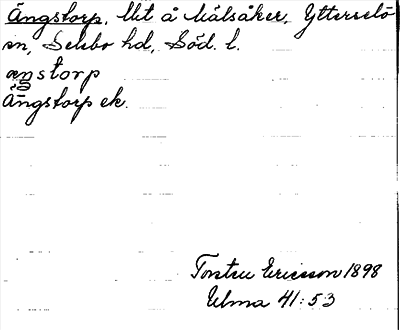 Ängstorp, Utit å Målsåker, Ytterselö
sn, Selebo hd, Söd. l.
æŋstorp
Ängstorp ek.
Torsten Ericsson 1898
Ulma 41:53